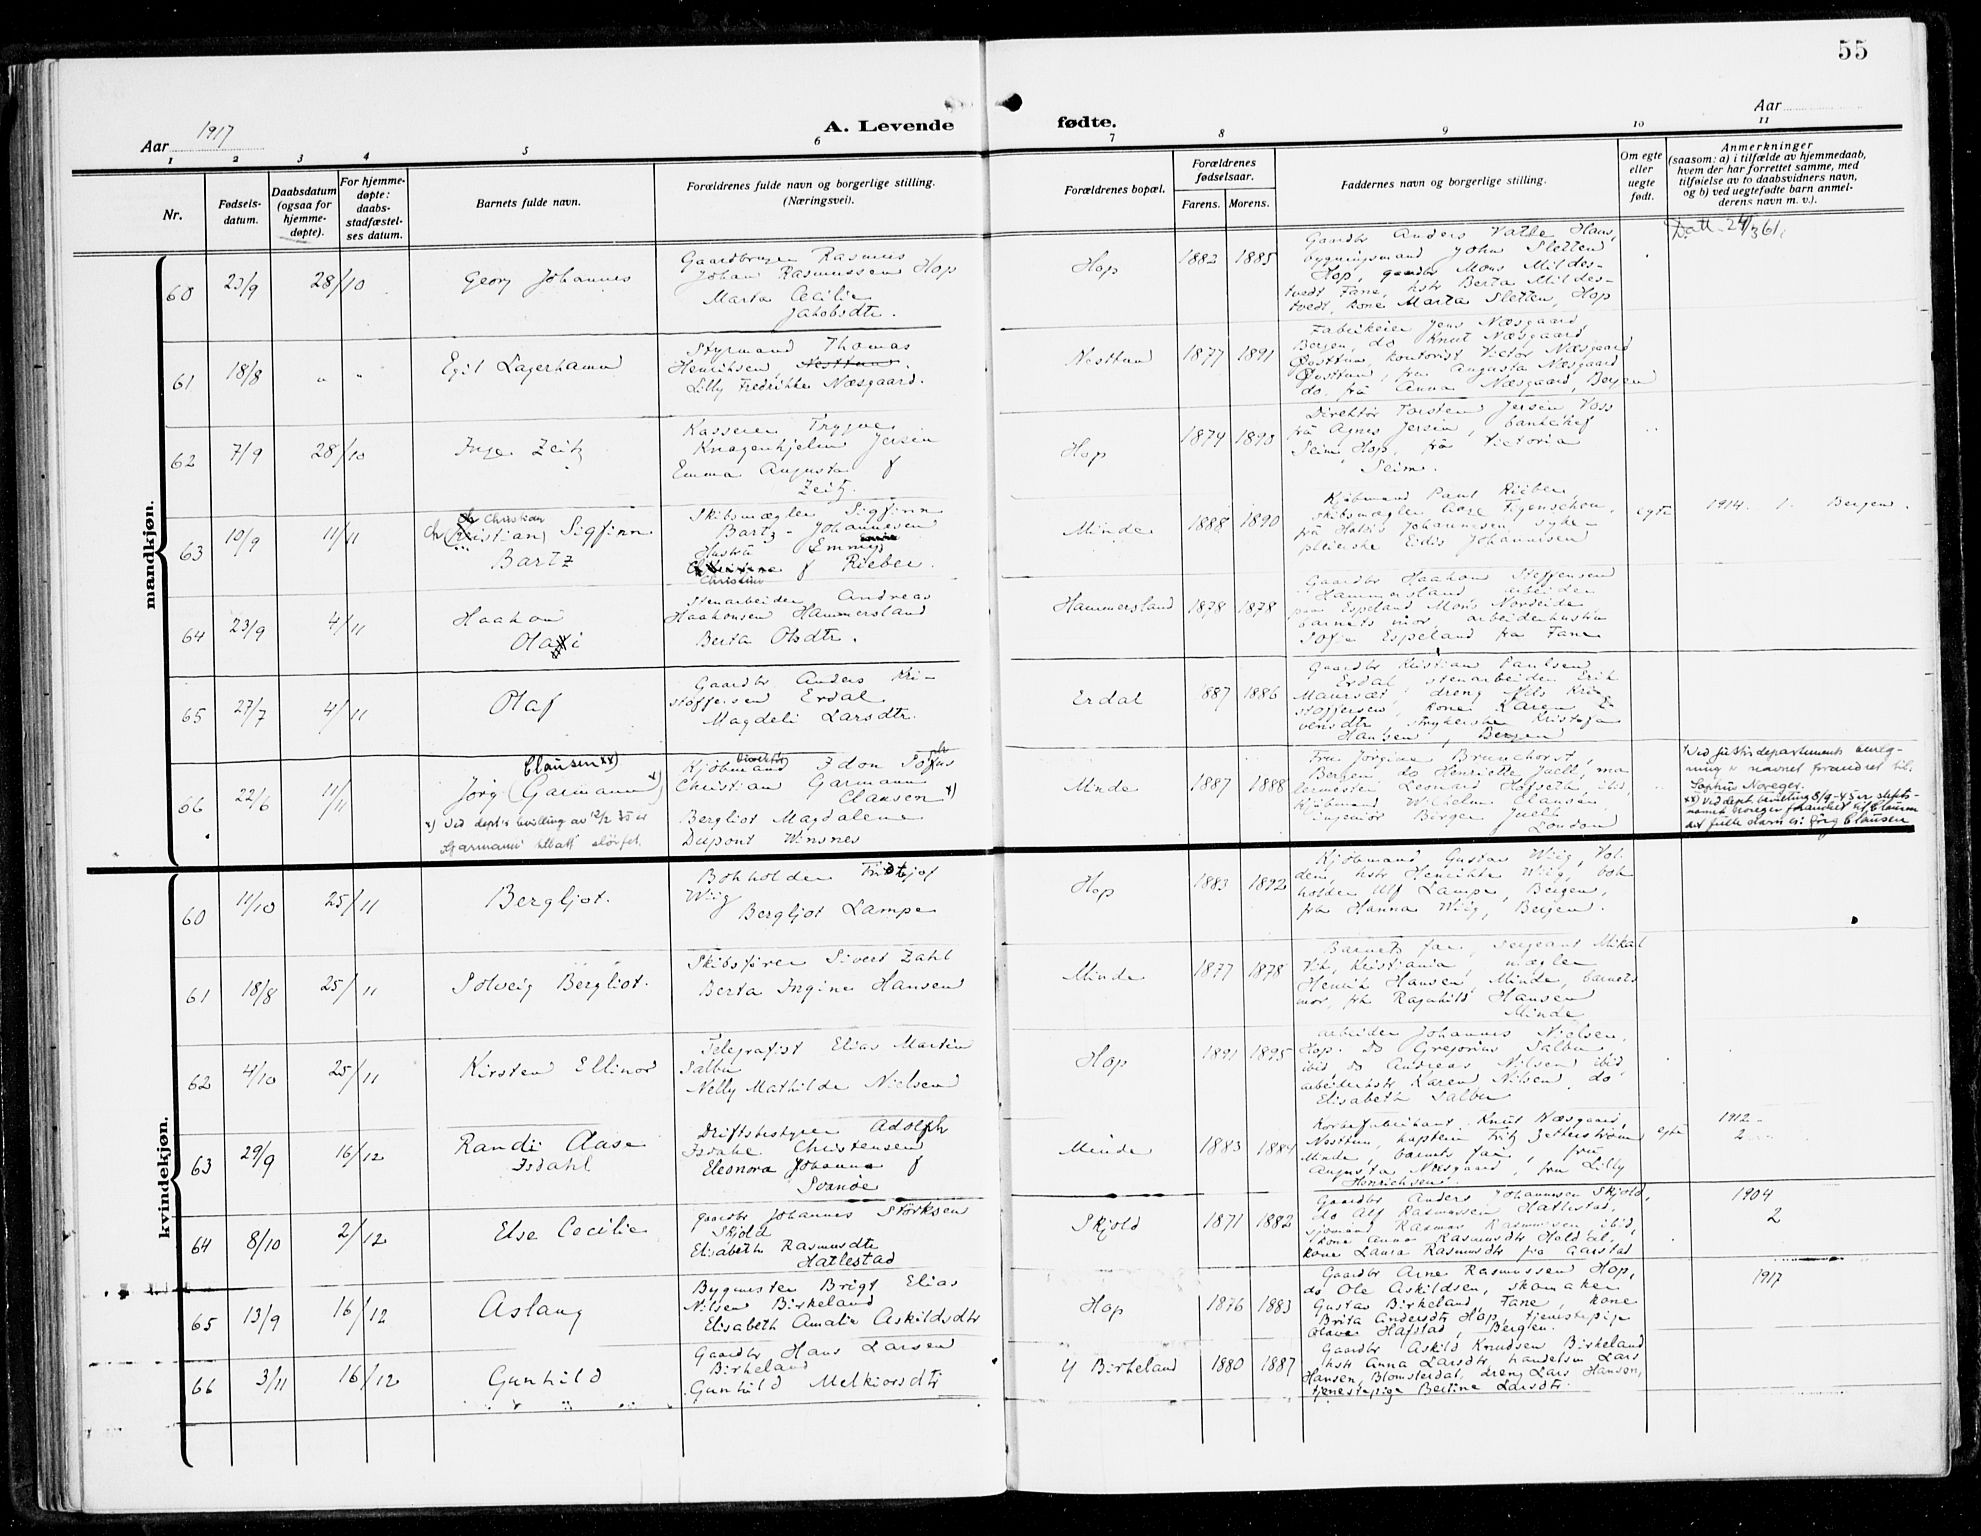 55
Aar 1917
A. Levende fødte.
Aar
1 2 3 4 5 6 7 8 9 10 11
Nr.
Fødsels-
datum.
Daabsdatum
(ogsaa for
hjemme-
døpte).
For hjemme-
døpte:
daabs-
stadfæstel-
ses datum.
Barnets fulde navn.
Forældrenes fulde navn og borgerlige stilling.
(Næringsvei).
Forældrenes bopæl.
Forældrenes
fødselsaar.
Farens. Morens.
Faddernes navn og borgerlige stilling.
Om egte
eller
uegte
født.
Anmerkninger
(saasom: a) i tilfælde av hjemmedaab,
hvem der har forrettet samme, med
tilføielse av to daabsvidners navn,
og b) ved uegtefødte barn anmel-
derens navn m. v.).
mandkjøn.
60 23/9 28/10 Georg Johannes
Gaardbruger Rasmus
Johan Rasmussen Hop
Marta Cecilie
Jakobsdtr.
Hop 1882 1885
Gaardbr Anders Valle Haus,
bygningsmand John Sletten
Hop, gaardbr Mons Mildes-
tvedt Fane, hstr Berta Mildes-
tvedt, kone Marta Sletten, Hop
61 18/8 " " Egil Lagerhamn
Styrmand Thomas
Henriksen, Nesttun.
Lilly Fredrikke Næsgaard.
Nesttun 1877 1891
Fabrikeier Jens Næsgaard,
Bergen, do Knut Næsgaard
Øvsttun, kontorist Victor Næsgaard
Øvsttun, fru Augusta Næsgaard
do. frk Anna Næsgaard, Bergen
62 7/9 28/10 Inge Zeitz
Kasserer Trygve
Knagenhjelm Jersin
Emma Augusta f
Zeitz.
Hop 1874 1893
Direktør Torsten Jersin Voss
fru Agnes Jersin, bankchef
Seim Hop, fru Victoria
Seim.
63 10/9 11/11 Christian Sigfinn
Bartz
Skibsmægler Sigfinn
Bartz-Johannesen
Hustru Emmy
Christine f Rieber.
Minde 1888 1890
Kjøbmand Paul Rieber,
skibsmægler Aage Figenschou,
fru Hattis Johannesen, syke-
pleierske Eidis Johannesen
egte 1914. 1. Bergen.
64 23/9 4/11 Haakon
Olai
Stenarbeider Andreas
Haakonsen Hammersland
Berta Olsdtr.
Hammersland 1878 1878
Gaardbr Haakon Steffensen
Hammersland arbeider
Espeland Mons Nordeide
barnets mor, arbeiderhustru
Sofie Espeland fra Fane
65 27/7 4/11 Olaf
Gaardbr Anders Kri-
stoffersen Erdal
Magdeli Larsdtr.
Erdal 1887 1886
Gaardbr Kristian Paulsen
Erdal stenarbeider Erik
Maursæt, dreng Nils Kri-
stoffersen, kone Karen E-
vensdtr, strykerske Kristofa
Hansen, Bergen
66 22/6 11/11 Jørg (Garmann) x)
Clausen xx)
x) Ved dept's bevilling av 12/2 35 er
"Garmann" tillatt sløifet.
Kjøbmand Don Sofus
Christian Garmann
Clausen x)
Bergliot Magdalene
Dupont Winsnes
Minde 1887 1888
Fru Jørgine Brunchorst,
Bergen, do Henriette Juell, ma
lermester Leonard Hofseth, ibid,
kjøbmand Wilhelm Clausen
ingeniør Birger Juell
London
x) Ved justisdepartements bevilg-
ning er navnet forandret til:
Sophus Noreger.
xx) Ved dept. bevilling 8/9-45 er slekts-
navnet Noreger forandret til Clausen
det fulle navn er: Jørg Clausen
kvindekjøn.
60 11/10 25/11 Bergljot.
Bokholder Fridtjof
Wiig
Bergljot Lampe
Hop 1883 1892
Kjøbmand Gustav Wiig, Vol-
den, hstr Henrikke Wiig, bok
holder Ulf Lampe, Bergen,
frk Hanna Wiig, Bergen.
61 18/8 25/11 Solveig Bergliot.
Skibsfører Sivert Zahl
Berta Ingine Hansen
Minde 1877 1878
Barnets far, sergeant Mikal
Vik, Kristiania, mægler
Henrik Hansen, Minde, barnets
mor, frk Ragnhild Hansen
Minde
62 4/10 25/11 Kirsten Ellinor
Telegrafist Elias Martin
Salbu
Nelly Mathilde Nielsen
Hop 1891 1895
Arbeider Johannes Nielsen,
Hop. do Gregorius Salbu
ibid, do Andreas Nilsen ibid
arbeiderhstr Karen Nilsen, do
Elisabeth Salbu
63 29/9 16/12 Randi Aase
Isdahl
Driftsbestyrer Adolph
Isdahl Christensen
Eleonora Johanne f
Svanøe
Minde 1883 1884
Korkefabrikant Knut Næsgaard,
Nesttun, kaptein Fritz Zetterstrøm
Minde, barnets far, fru
Augusta Næsgaard, fru Lilly
Henrichsen.
egte 1912-
2
64 8/10 2/12 Else Cecilie
Gaardbr Johannes Størksen
Skjold
Elisabeth Rasmusdtr
Hatlestad
Skjold 1871 1882
Gaardbr Anders Johannesen Skjold,
do Alf Rasmussen Hatlestad,
sjømand Rasmus Rasmussen, ibid,
kone Anna Rasmusdtr Holdal,
kone Laura Rasmusdtr fra Aarstad
1904
2
65 13/9 16/12 Aslaug
Bygmester Brigt Elias
Nilsen Birkeland
Elisabeth Amalie Askildsdtr
Hop 1876 1883
Gaardbr Arne Rasmussen Hop,
do Ole Askildsen, skomaker
Gustav Birkeland, Fane, kone
Brita Andersdtr Hop, tjenestepige
Olava Hafstad, Bergen.
1917
66 3/11 16/12 Gunhild
Gaardbr Hans Larsen
Birkeland
Gunhild Melkiorsdtr
Y Birkeland 1880 1887
Gaardbr Askild Knudsen Birkeland
hstr Anna Larsdtr, handelsm Lars
Hansen, Blomsterdal, dreng Lars Hansen,
tjenestepige Bertine Larsdtr.